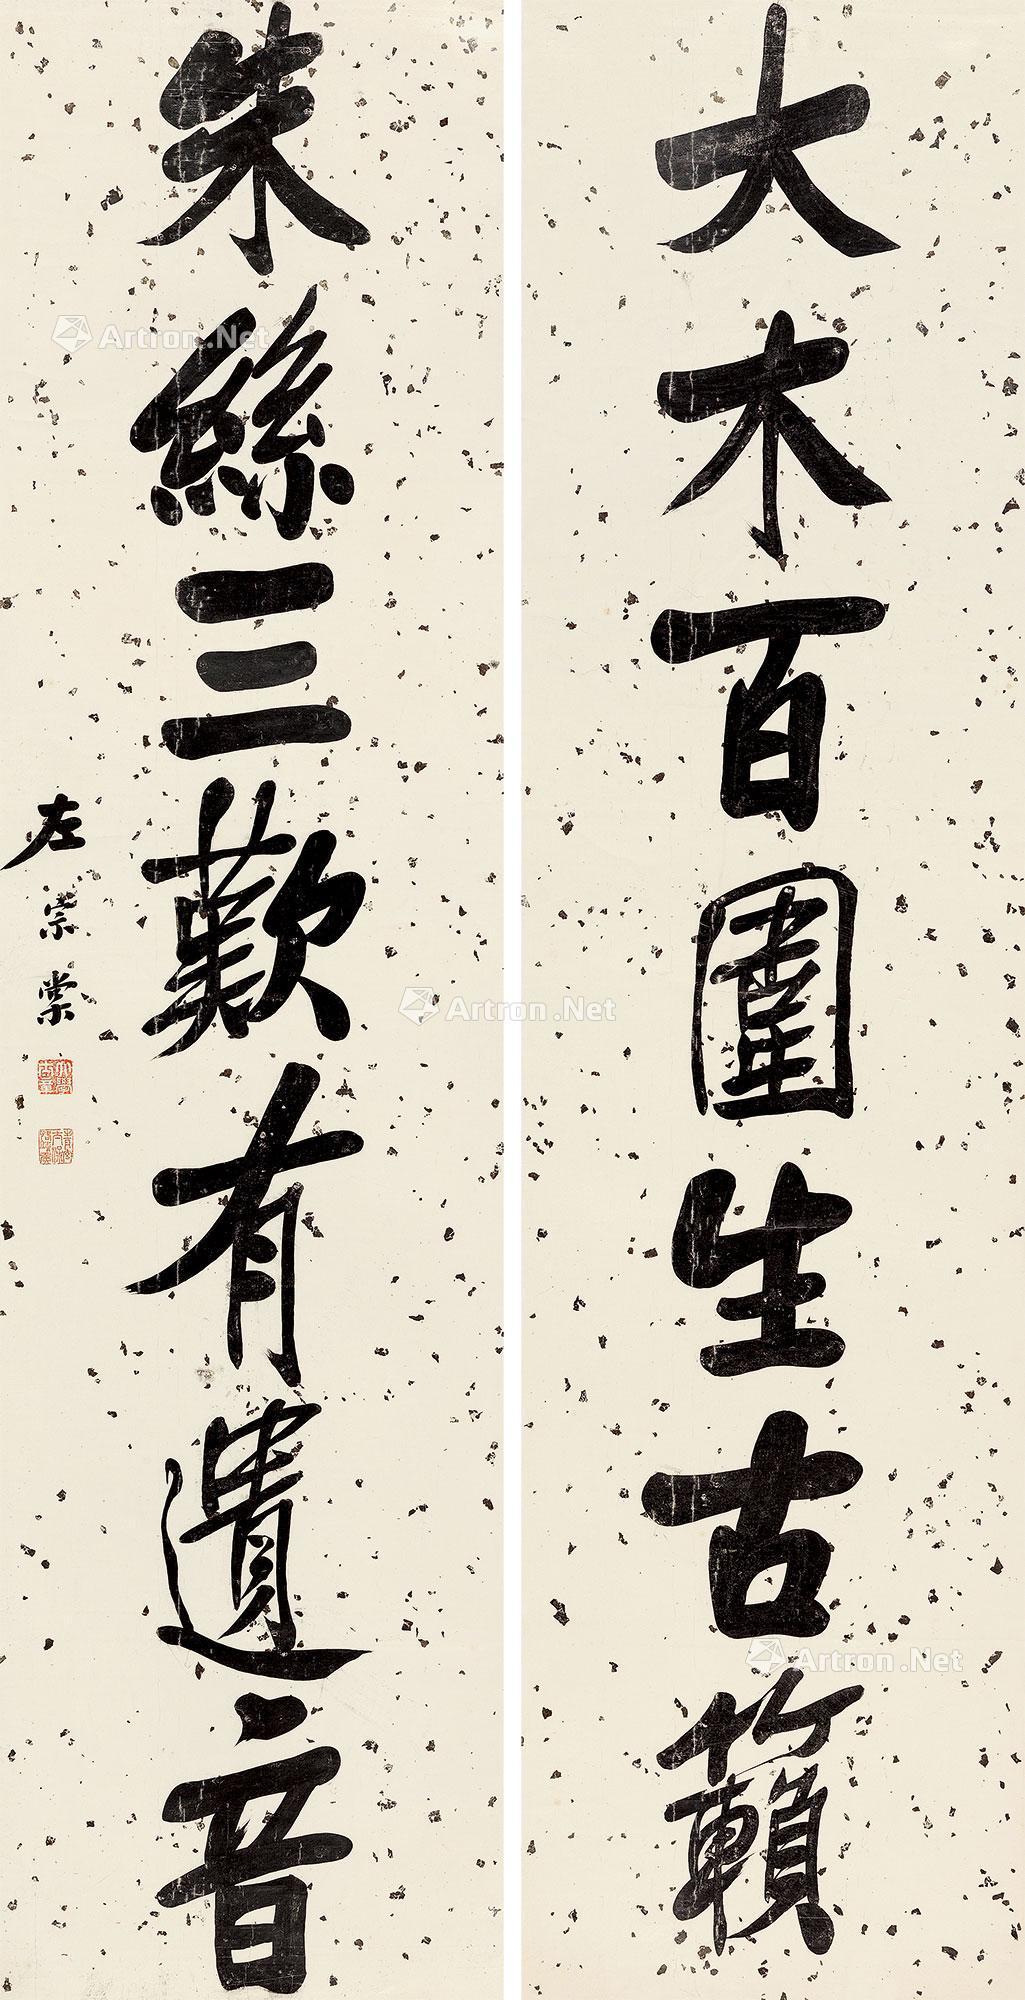 大木百圍生古籟
朱絲三歎有遺音
左宗棠
Artron.Net
Artron.Net
Artron.Net